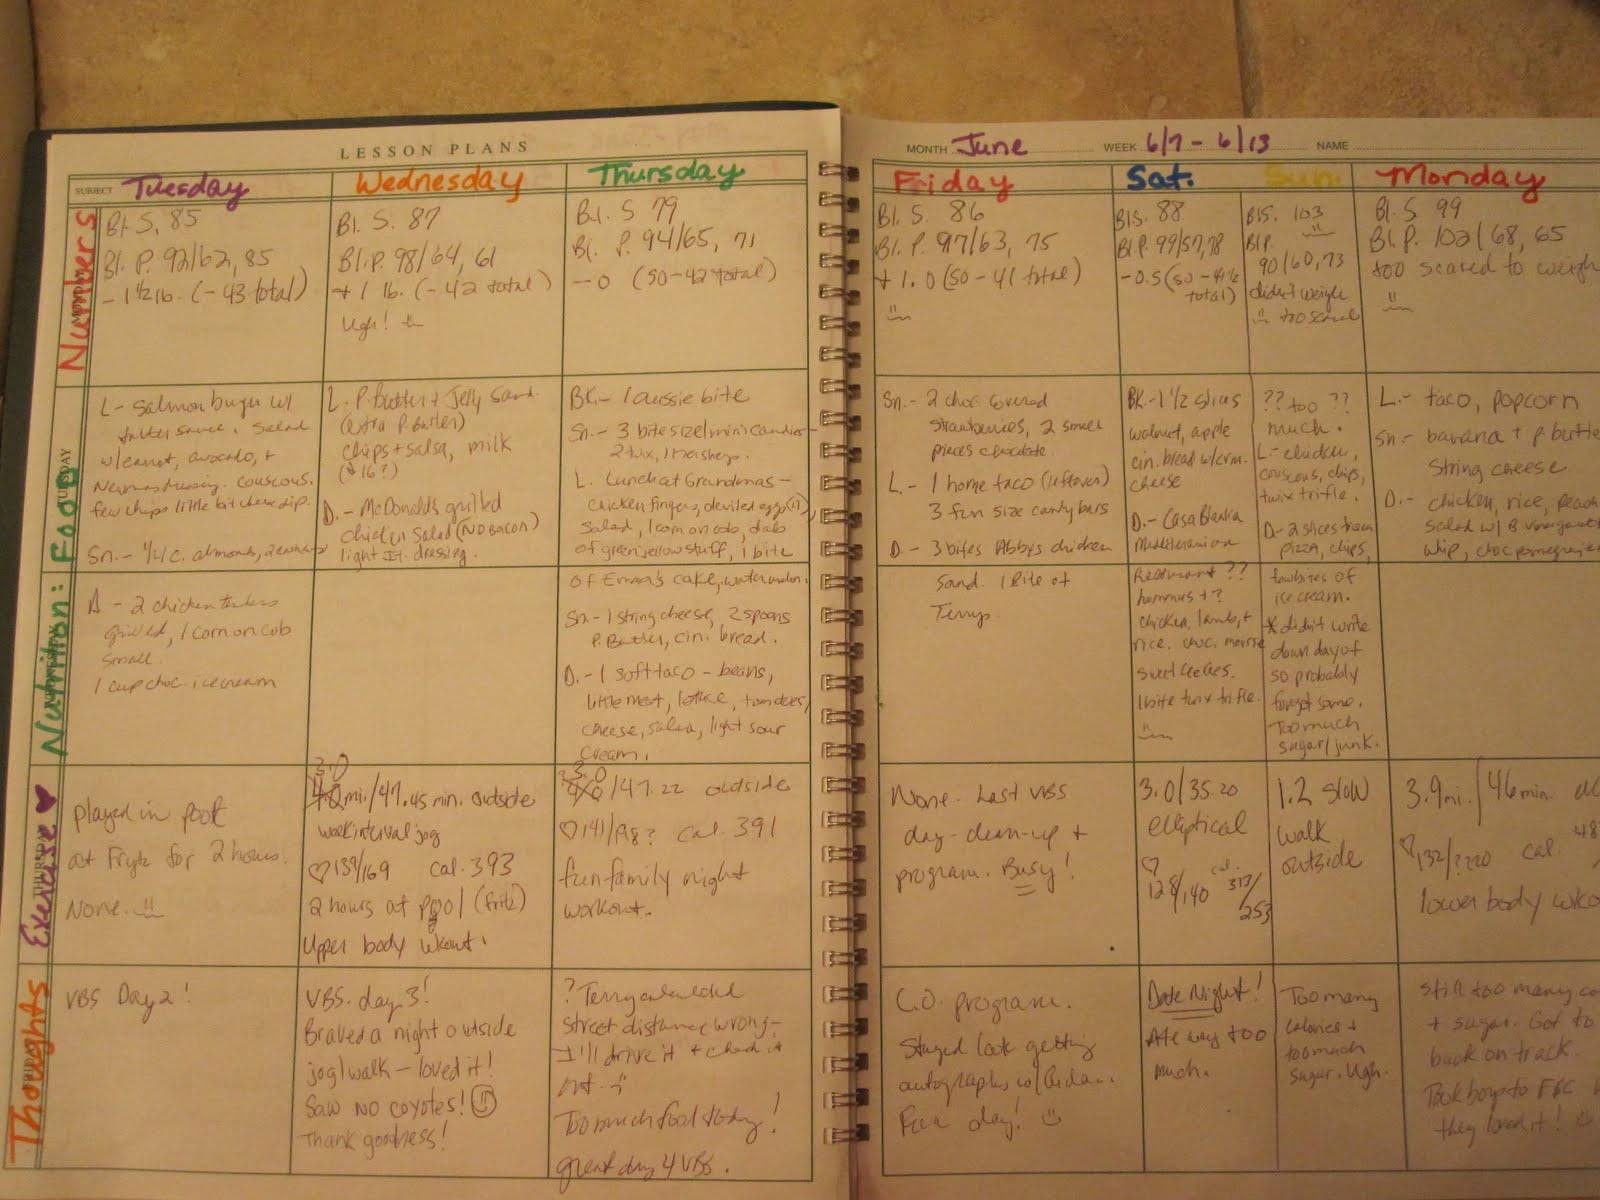 LESSON PLANS
SUBJECT Tuesday
Wednesday
Thursday
MONTH June WEEK 6/7 - 6/13 NAME
Friday
Sat.
Sun.
Monday
Numbers
Bl. S. 85
Bl. P. 92/62, 85
- 1 1/2 lb. (-43 total)
Bl. S. 87
Bl. P. 98/64, 61
+ 1 lb. (-42 total)
Ugh!
Bl. S 79
Bl. P. 94/65, 71
- 0 (50-42 total)
Bl. S. 86
Bl. P. 97/63, 75
+ 1.0 (50-41 total)
Bl S. 88
Bl P 99/57, 78
-0.5 (50-41 1/2
total)
Bl S. 103
Bl P.
90/60, 73
didn't weigh
too scared
Bl. S 99
Bl. P. 102/68, 65
too scared to weigh
Nutrition: Food
L- Salmon burger w/
tarter sauce, salad
w/carrot, avocado, +
Newmans dressing. couscous.
few chips little bit cheese dip.
Sn.- 1/4 c. almonds, 2
D - 2 chicken tenders
grilled, 1 corn on cob
small.
1 cup choc. ice cream
L. P. Butter + Jelly Sand.
(extra P. Butter)
chips + salsa, milk
(16?)
D.- McDonald's grilled
chicken Salad (NO BACON)
light It. dressing.
BK.- 1 aussie bite
Sn.- 3 bite size/mini candies-
2 twix, 1
L. Lunch at Grandmas-
chicken fingers, deviled eggs (1),
salad, 1 corn on cob, dab
of green yellow stuff, 1 bite
of Emma's cake, watermelon.
Sn- 1 string cheese, 2 spoons
P. Butter, cin. bread.
D.- 1 soft taco - beans,
little meat, lettuce, tomatoes,
cheese, salsa, light sour
cream.
Sn.- 2 choc. covered
strawberries, 2 small
pieces chocolate.
L.- 1 home taco (leftover)
3 fun size candy bars
D.- 3 bites Abbys chicken
Sand. 1 Bite of
Terrys.
BK.- 1 1/2 slices
walnut, apple
cin. bread w/crm.
cheese
D.- Casablanka
Mediterranian
Restaurant ??
hummus + ?
chicken, lamb, +
rice. choc. mousse
sweet
1 bite twix trifle.
?? too ??
much.
L- chicken,
couscous, chips,
twix trifle.
D- 2 slices
pizza, chips,
few bites of
ice cream.
* didn't write
down day of
so probably
forgot some.
Too much
sugar/junk.
L.- taco, popcorn
Sn- banana + p. butter
String cheese
D.- chicken, rice,
salad w/
whip, choc pomegranate
Exercise
played in pool
at Frytz for 2 hours.
None.
3.0
4.0 mi./47.45 min. outside
walk interval jog
♡ 139/169 cal. 393
2 hours at pool (fritz)
Upper body wkout.
? 3.0
4.0/47.22 outside
♡ 141/198? cal. 391
fun family night
workout.
None. Last VBS
day - clean-up +
program. Busy!
3.0/35.20
elliptical
♡ cal.
128/140 313/
253
1.2 slow
walk
outside
3.9 mi./46 min.
♡ 132/??20 cal.
lower body
Thoughts
VBS Day 2!
VBS. day 3!
Braved a night outside
jog/walk - loved it!
Saw NO coyotes!
Thank goodness!
? Terry calculated
street distance wrong-
I'll drive it + check it
out
Too much food today!
great day 4 VBS.
C.O. program.
Stayed late getting
autographs w/
Fun day!
Date Night!
Ate way too
much.
Too many
calories +
too much
sugar. Ugh.
Still too many
+ sugar. Got to
back on track.
Took boys to
they loved it!